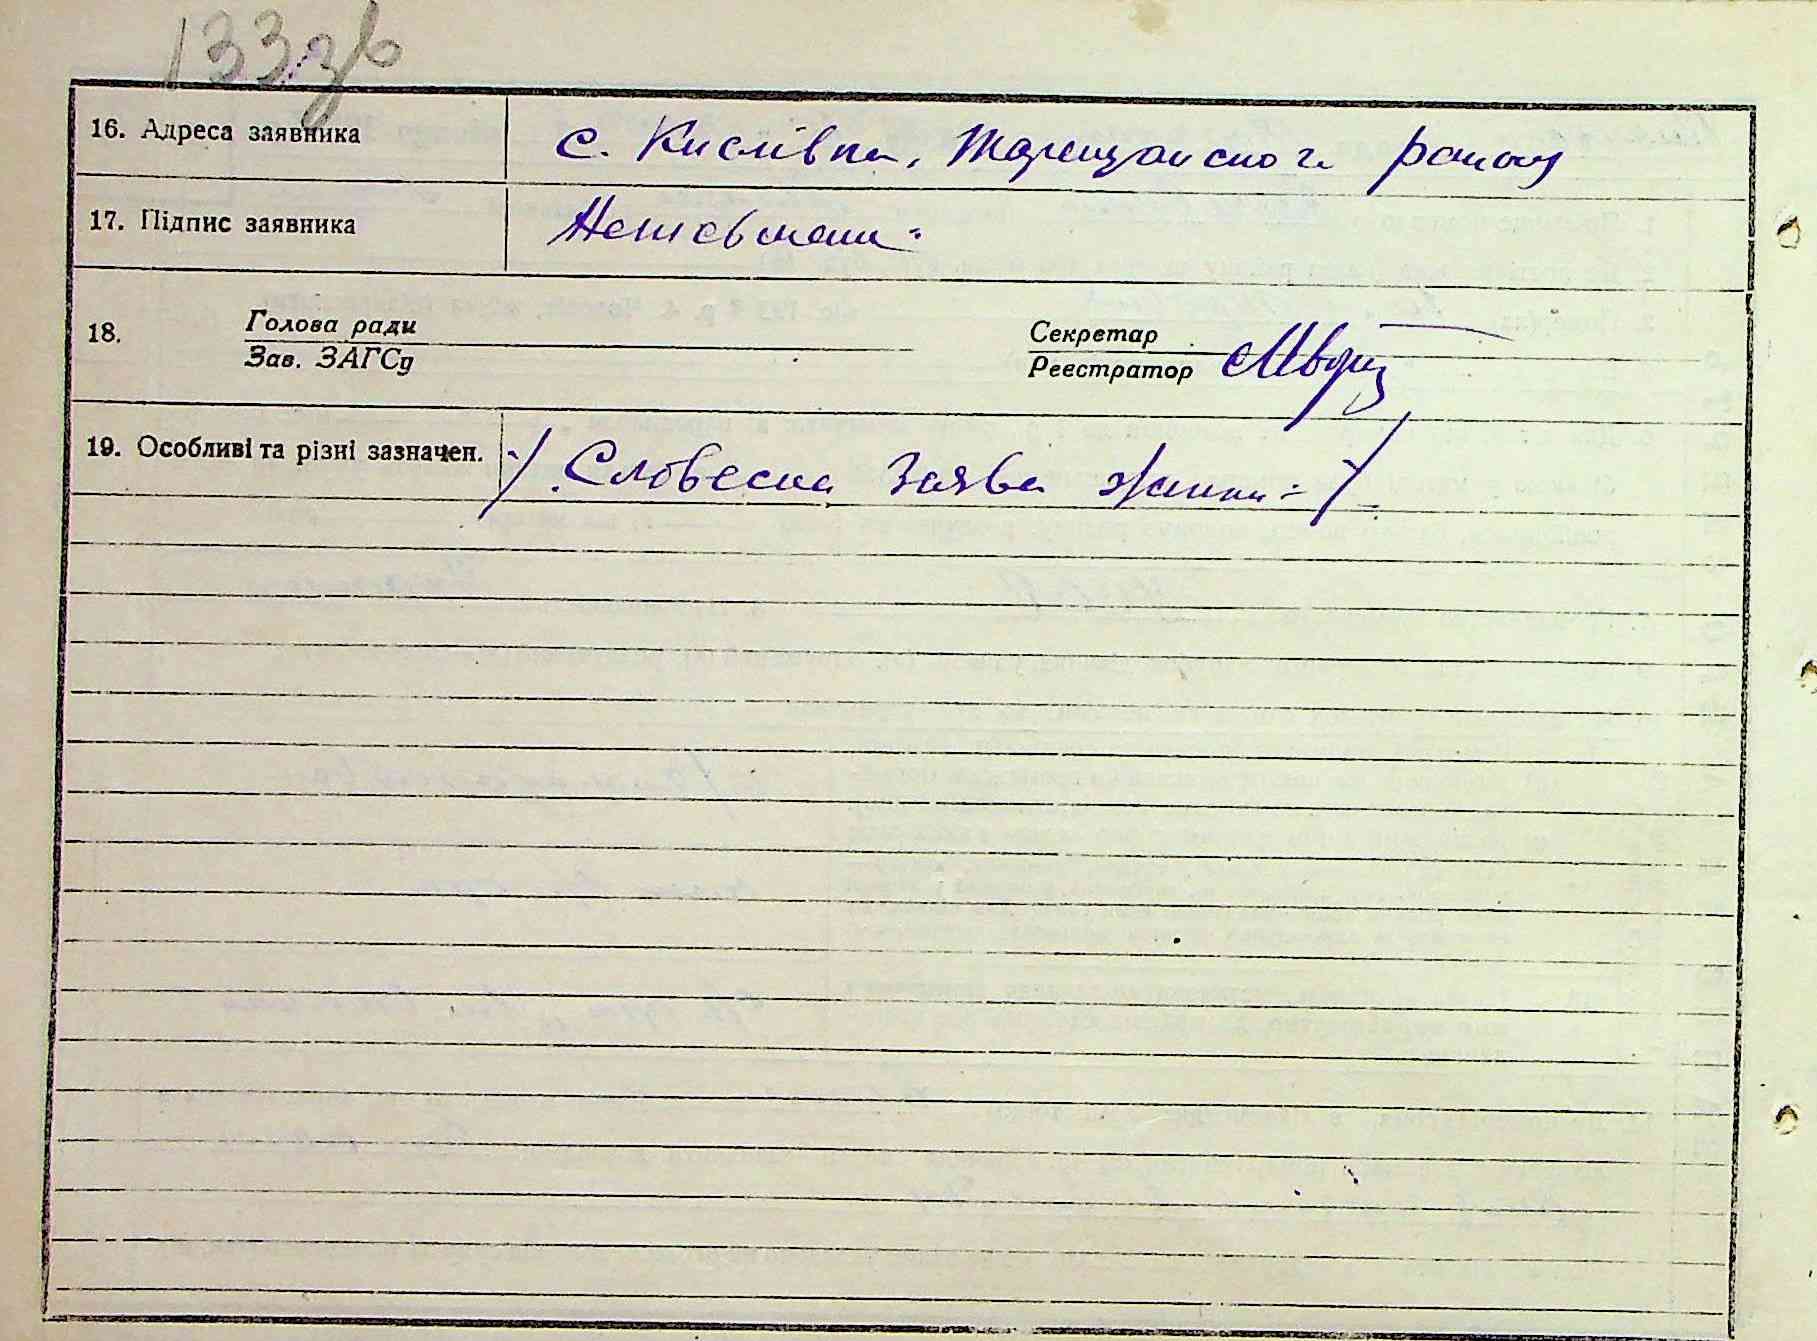 133зв
16. Адреса заявника с. Кислівка, Таращанського району
17. Підпис заявника Неписьмен:
18. Голова ради Секретар
Зав. ЗАГСу Реєстратор
19. Особливі та різні зазначен. /. Словесна Заява жінки:-/